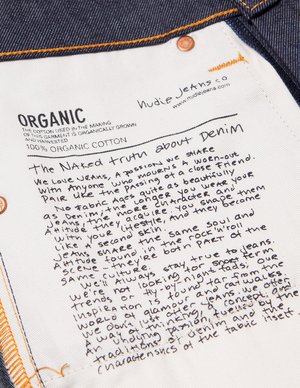 ORGANIC
THE COTTON USED IN THE MAKING
OF THIS GARMENT IS ORGANICALLY GROWN
AND HARVESTED
100% ORGANIC COTTON
nudie jeans co
www.nudiejeans.com
The Naked truth about Denim
We love jeans, a passion we share
with anyone who mourns a worn-out
pair like the passing of a close friend.
No fabric ages quite as beautiful
as denim, the longer you wear your
jeans the more character and
attitude they acquire. You shape them
with your lifestyle, and they become
like a second skin.
Jeans share the same soul and
attitude found in the rock'n'roll
scene - they're both part of the
same culture.
We'll always stay true to jeans.
We're not looking for superficial
trends or try or night fads, our
inspiration is found far from the
world of glamour and catwalks.
We don't just offer jeans, we offer
a way of thinking, a concept and
an undying passion, fuelled by the
traditions of denim and the
characteristics of the fabric itself